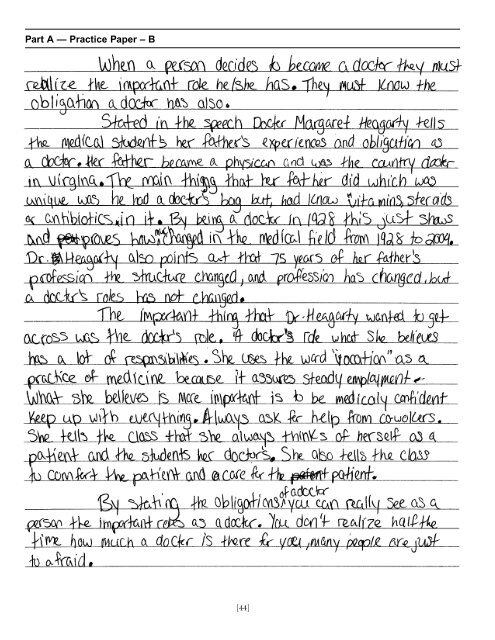 Part A — Practice Paper – B
When a person decides to become a doctor they must
realize the important role he/she has. They must know the
obligation a doctor has also.
Stated in the speech Docter Margaret Heagarty tells
the medical student's her father's experiences and obligation as
a doctor. Her father became a physican and was the country docter
in Virgina. The main thing that her father did which was
unique was he had a doctor's bag but, had know vitamins, steroids
or antibiotics in it. By being a doctor in 1928 this just shows
and proves how much changed in the medical field from 1928 to 2009.
Dr. Heagarty also points out that 75 years of her father's
profession the structure changed, and profession has changed, but
a doctor's roles has not changed.
The important thing that Dr. Heagarty wanted to get
across was the doctor's role. A doctor's role what she believes
has a lot of responsibilities. She uses the word "vocation" as a
practice of medicine because it assures steady employment.
What she believes is more important is to be medicaly confident
Keep up with everything. Always ask for help from cowokers.
She tells the class that she always thinks of herself as a
patient and the students her doctors. She also tells the class
to comfort the patient and care for the patient.
By stating the obligations of a doctor you can really see as a
person the important as a doctor. You don't realize half the
time how much a docter is there for you, many people are just
to afraid.
[44]